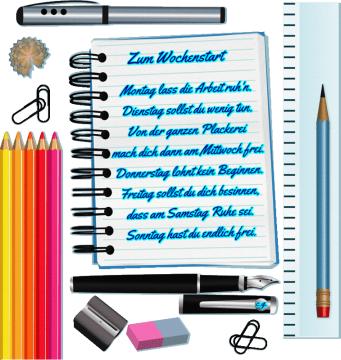 Zum Wochenstart
Montag lass die Arbeit ruh'n.
Dienstag sollst du wenig tun.
Von der ganzen Plackerei
mach dich dann am Mittwoch frei.
Donnerstag lohnt kein Beginnen,
Freitag sollst du dich besinnen,
dass am Samstag Ruhe sei,
Sonntag hast du endlich frei.